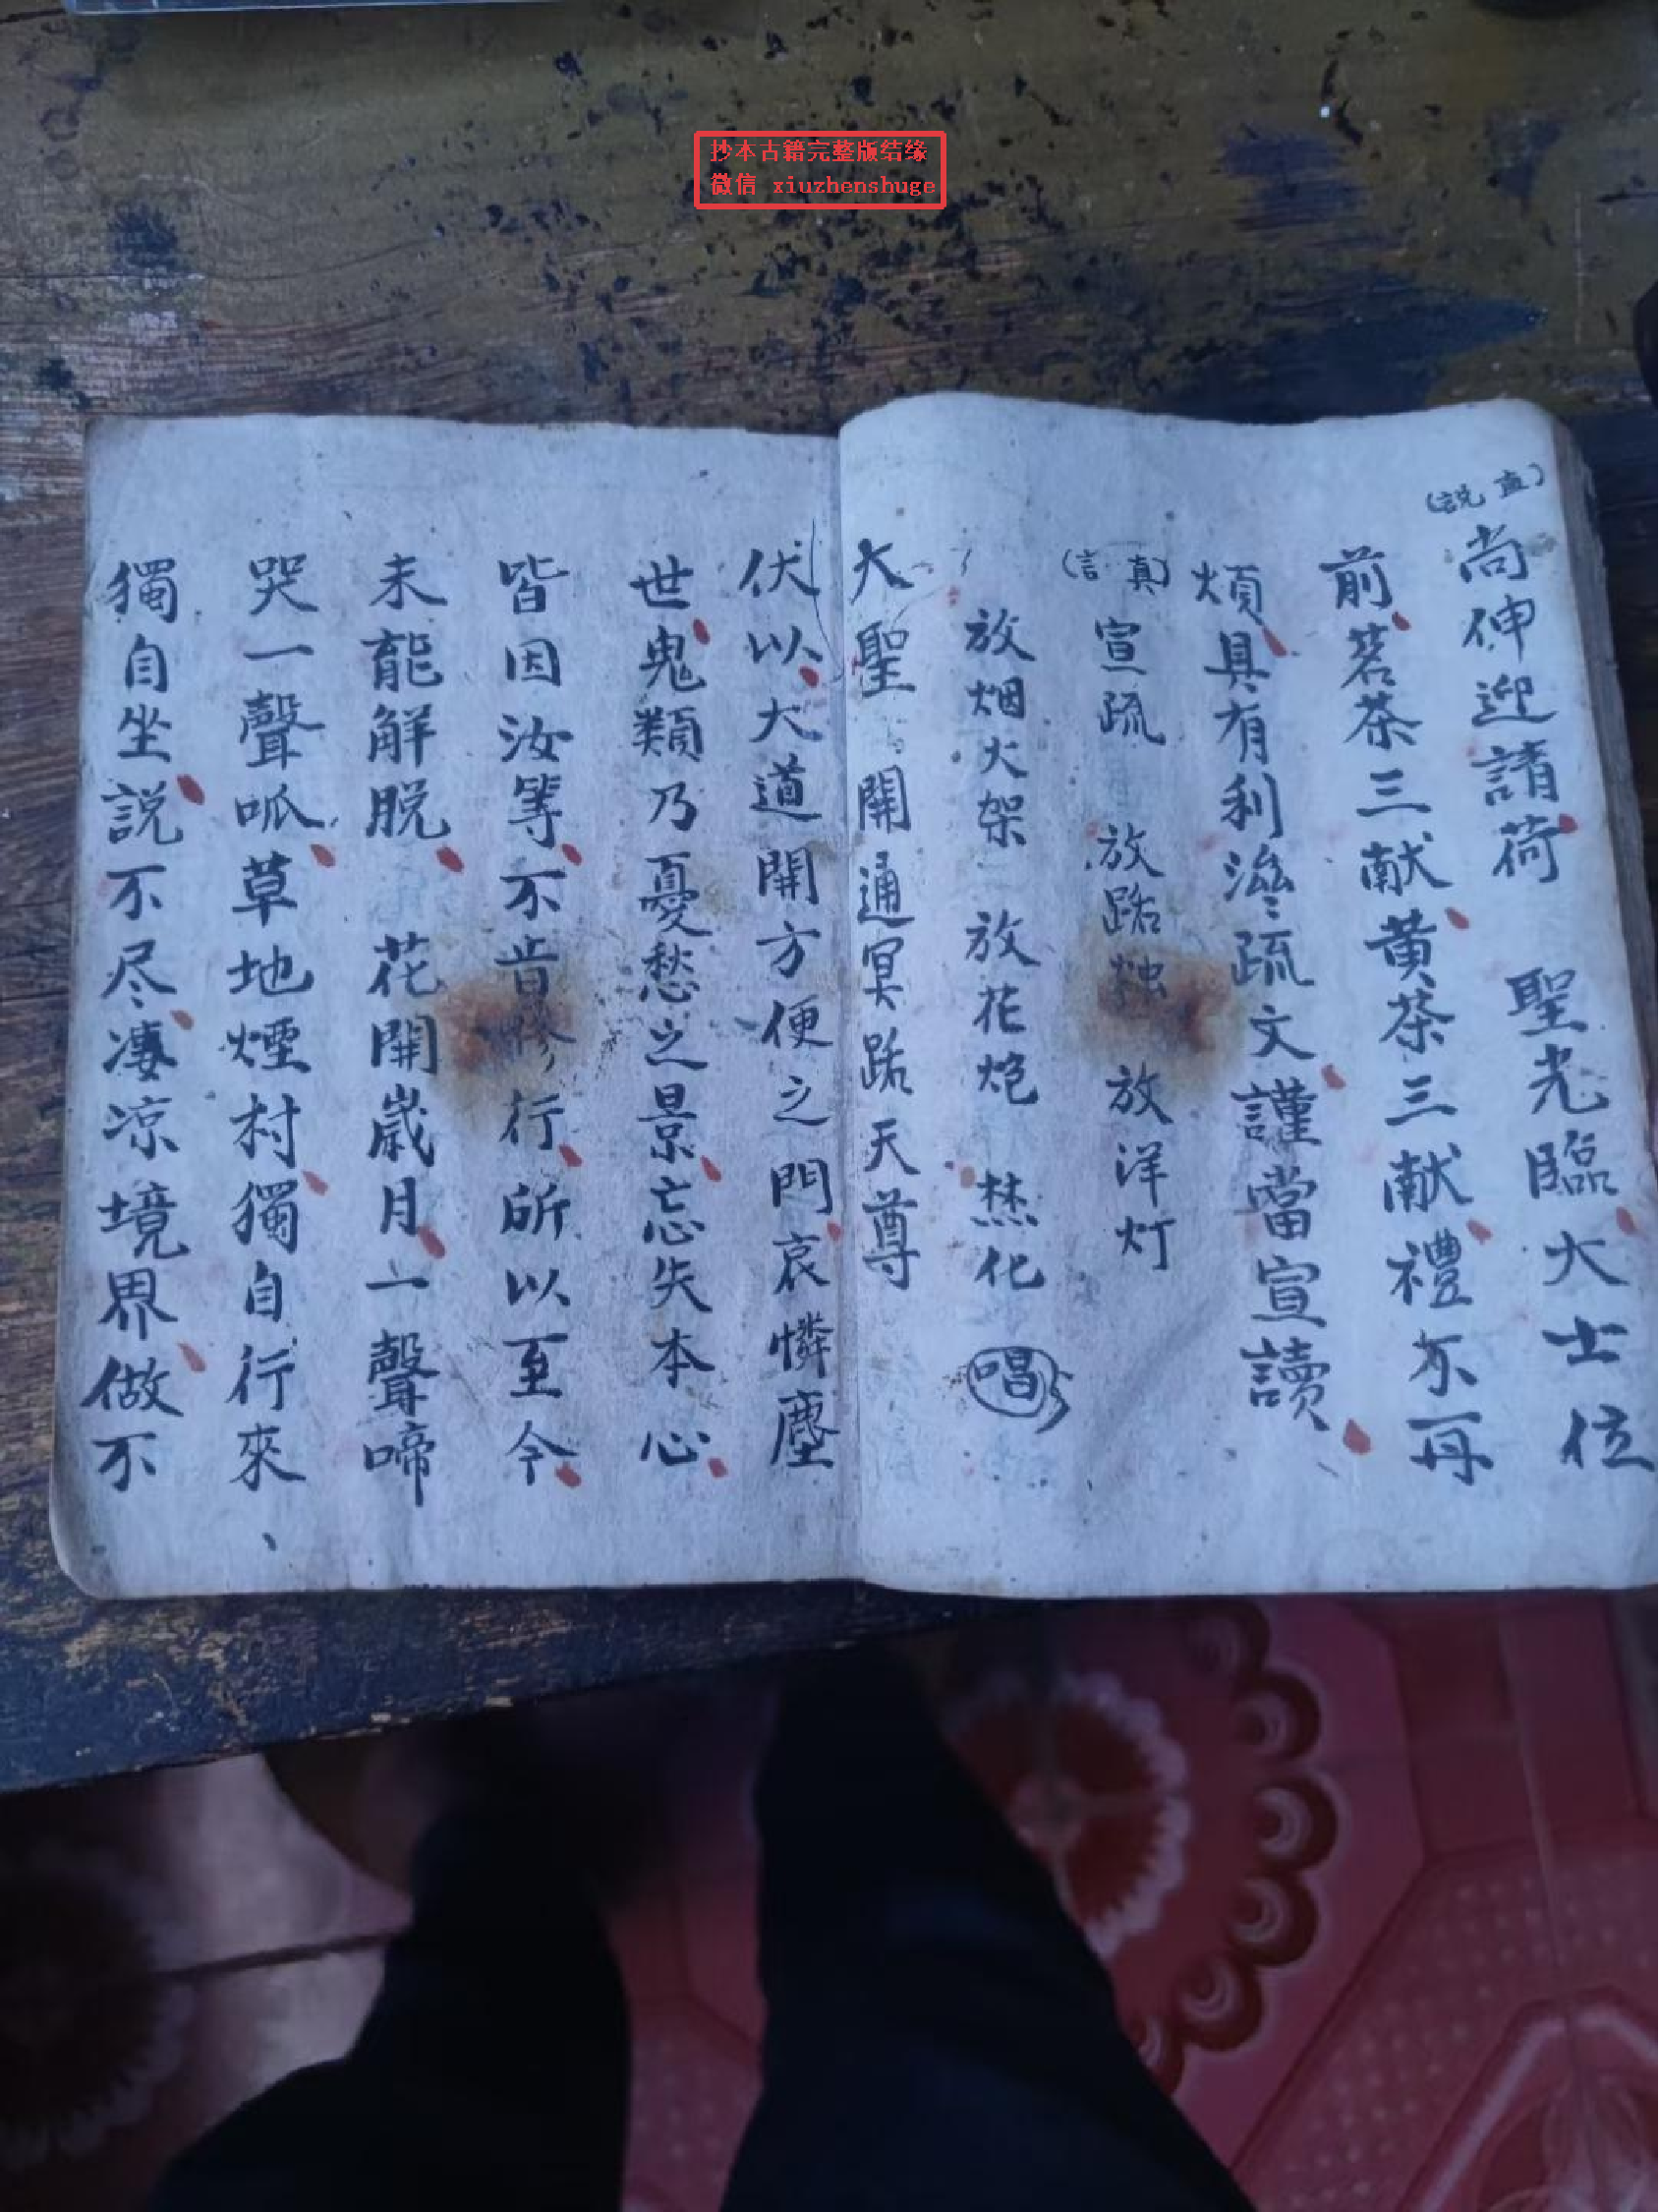 抄本古籍完整版结缘
微信 xiuzhenshuge
(説直)
尚伸迎請荷 聖光臨大士位
前茗茶三献黄茶三献禮不再
煩具有利滋〻疏文謹當宣讀
(言真)宣疏 放路烛 放洋灯
放烟火架 放花炮 焚化 唱
大聖開通冥路天尊
伏以大道開方便之門哀憐塵
世鬼類乃憂愁之景忘失本心
皆因汝等不肯修行所以至今
未能解脱 花開歲月一聲啼
哭一聲呱草地煙村獨自行來、
獨自坐説不尽凄凉境界做不